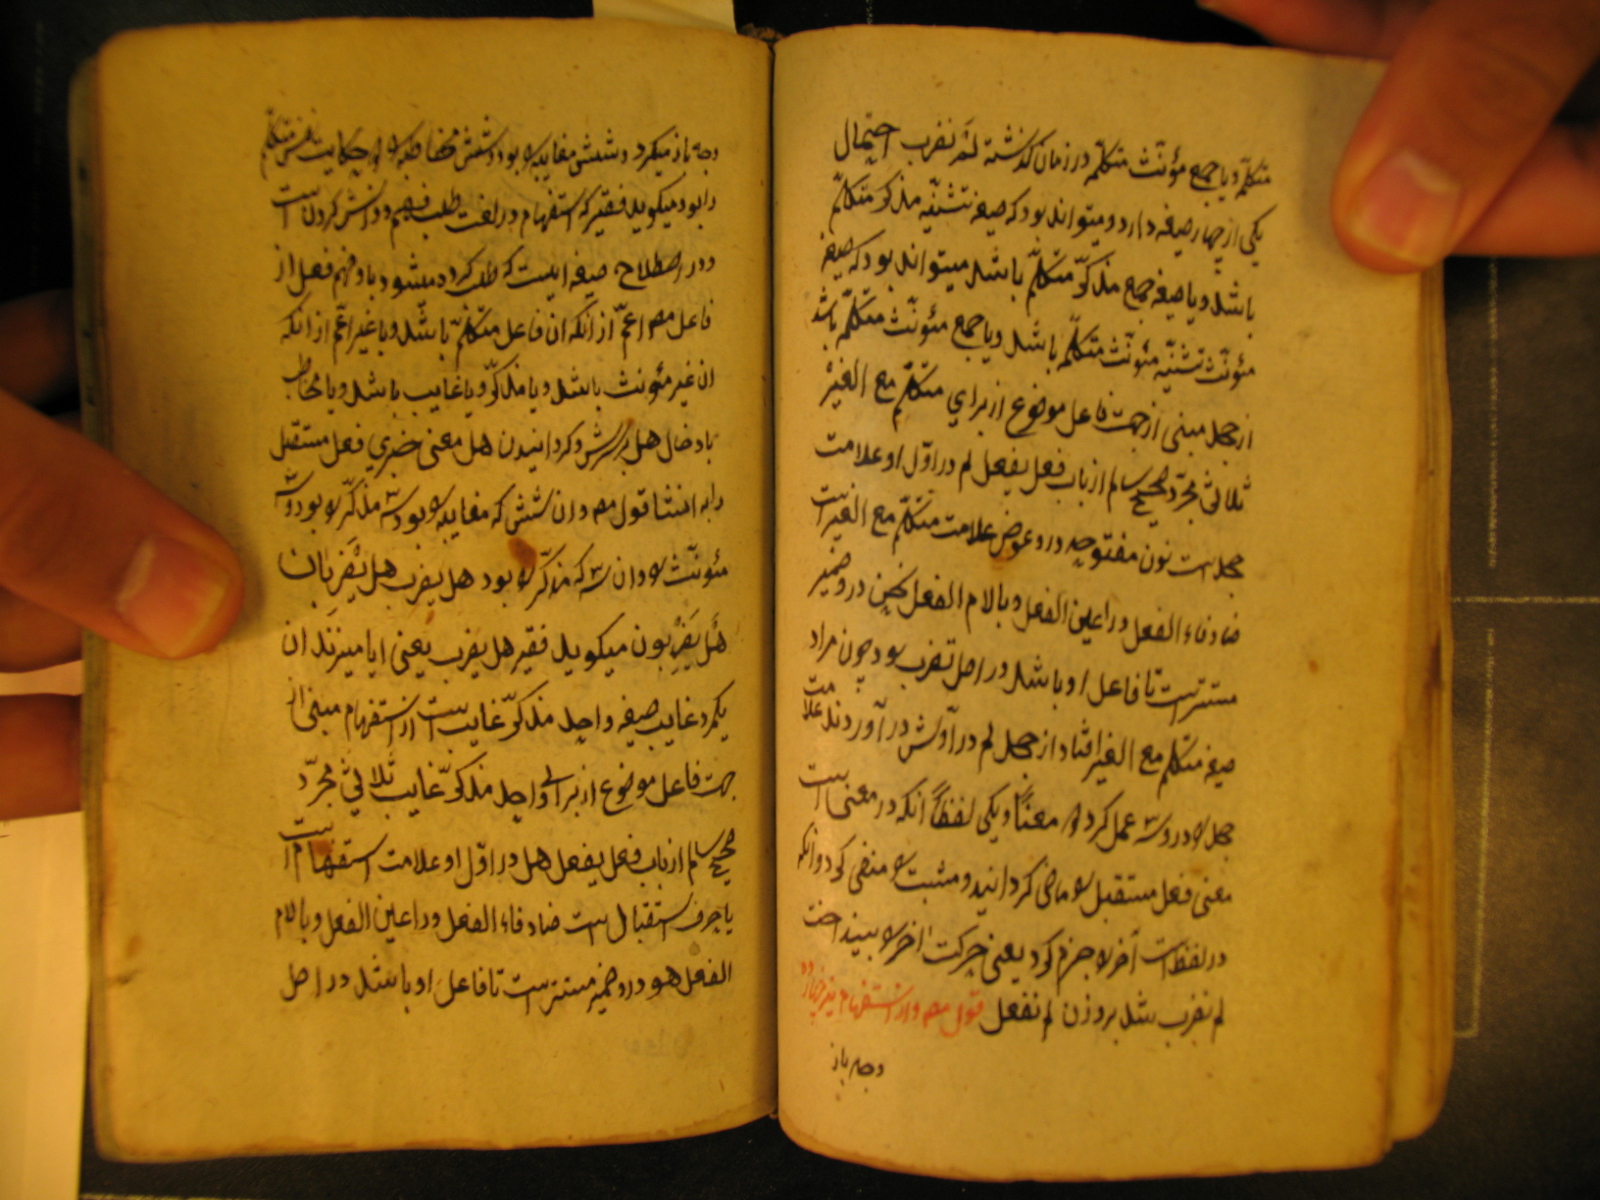 متکلمه و یا جمع مؤنث متکلمه در زمان گذشته لم نضرب احتمال
یکی از چهار صیغه دارد و میتواند بود که صیغه تثنیه مذکر متکلم
باشد و یا صیغه جمع مذکر متکلم باشد میتواند بود که صیغه
مؤنث تثنیه مؤنث متکلم باشد و یا جمع مئونث متکلم باشد
از جحد مبنی از جهت فاعل موضوع از برای متکلم مع الغیر
ثلاثی مجرد صحیح سالم از باب فعل یفعل لم در اول او علامت
جحد است نون مفتوحه درو عوض علامت متکلم مع الغیر است
ضاد فاء الفعل و را عین الفعل و با لام الفعل نحن درو ضمیر
مستتر است تا فاعل او باشد در اصل نضرب بود چون مراد
صیغه متکلم مع الغیر افتاد از جحد لم در اولش در آوردند علامت
جحد بود درو سه عمل کرد دو معنًا و یکی لفظاً انکه در معنی است
معنی فعل مستقبل را ماضی گردانید و مثبت را منفی کرد و انکه
در لفظ است آخر را جزم کرد یعنی حرکت آخر را بینداخت
لم نضرب شد بر وزن لم نفعل قول مص و از استفهام نیز چهارده
وجه باز
وجه باز میگردد و شش مغایبه را بود و شش مخاطبه را و دو حکایت نفس متکلم
را بود میگوید فقیر که استفهام در لغت طلب فهم و دانش کردن است
و در اصطلاح صیغه ایست که طلب کرده میشود باو فهم فعل از
فاعل مص اعم از انکه ان فاعل متکلم باشد و یا غیر اعم از انکه
ان غیر مئونث باشد و یا مذکر و یا غایب باشد و یا مخاطب
بادخال هل برسرش و گردانیدن هل معنی خبری فعل مستقبل
را به انشا قول مص و ان شش که مغایبه را بود سه مذکر را بود و سه
مئونث را و ان سه که مذکر را بود هل یضرب هل یضربان
هل یضربون میگوید فقیر هل یضرب یعنی ایا میزند ان
یکمرد غایب صیغه واحد مذکر غایب است از استفهام مبنی از
جهت فاعل موضوع از برای واحد مذکر غایب ثلاثی مجرد
صحیح سالم از باب فعل یفعل هل در اول او علامت استفهام است
یا حرف استقبال است ضاد فاء الفعل و را عین الفعل و با لام
الفعل هو درو ضمیر مستتر است تا فاعل او باشد در اصل